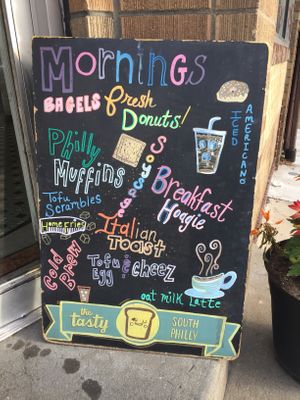 Mornings
BAGELS
fresh
Donuts!
ICED
AMERICANO
Philly
Muffins
Tofu
Scrambles
Breakfast
Hoagie
Home Fries
Italian
Toast
Cold
Brew
Tofu &
Egg
Cheez
oat milk Latte
the
tasty
SOUTH
PHILLY